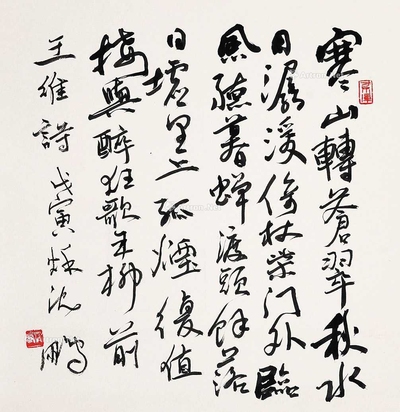 寒山轉蒼翠秋水
日潺湲倚杖柴門外臨
風聽暮蟬渡頭餘落
日墟里上孤煙復值
接輿醉狂歌五柳前
王維詩戊寅秋沈鵬